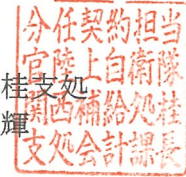 分任契約担当
官陸上自衛隊
関西補給処桂
支処会計課長
桂支処
輝